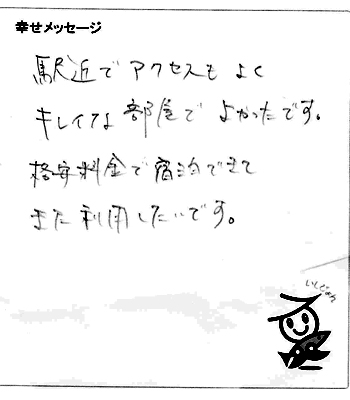 幸せメッセージ
駅近でアクセスもよく
キレイな部屋でよかったです。
格安料金で宿泊できて
また利用したいです。